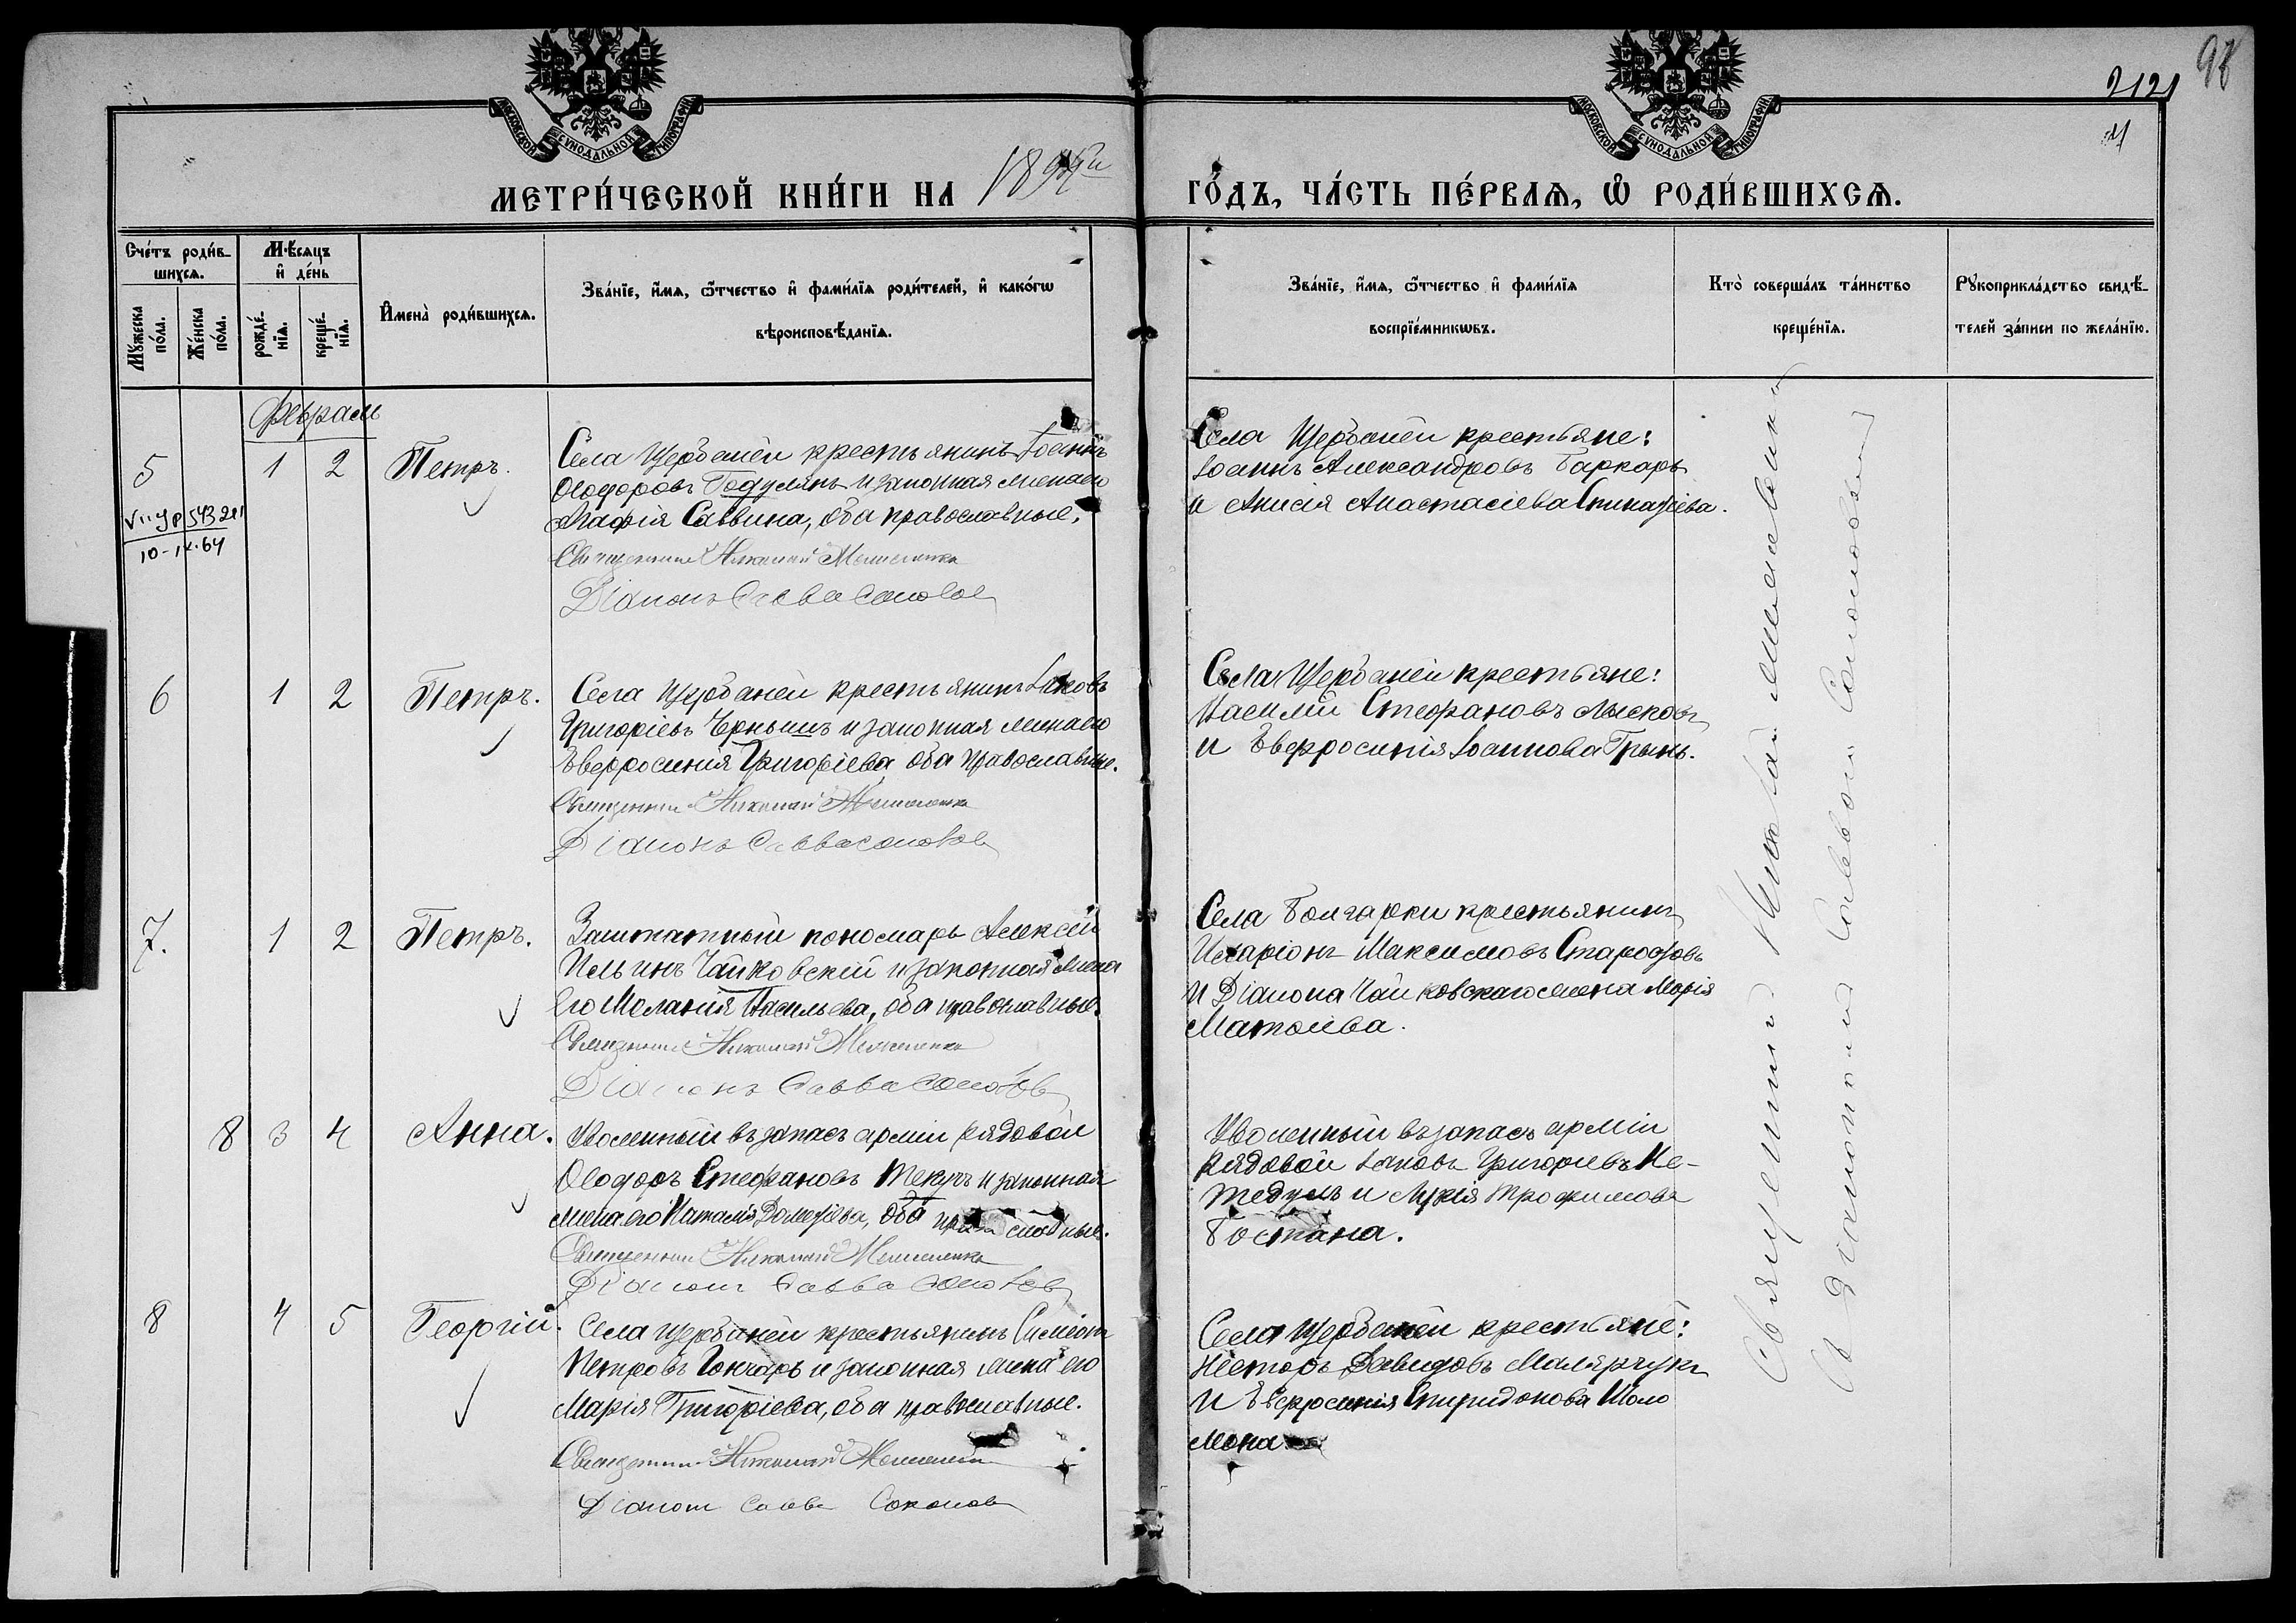 98
2121
МОСКОВСКОЙ СѴНОДАЛЬНОЙ ТИПОГРАФІИ
МОСКОВСКОЙ СѴНОДАЛЬНОЙ ТИПОГРАФІИ
МЕТРИ́ЧЕСКОЙ КНИ́ГИ НА 189
ГО́ДЪ, ЧА́СТЬ ПЕ́РВАѦ, Ѽ РОДИ́ВШИХСѦ.
Сче́тъ роди́в-
шихсѧ.
Мꙋ́жеска
по́ла.
Же́нска
по́ла.
Мѣ́сѧцъ
и҆ де́нь
рожде́-
нїѧ.
креще́-
нїѧ.
И҆мена̀ роди́вшихсѧ.
Зва́нїе, и҆́мѧ, ѻ҆́тчество и҆ фами́лїѧ роди́телей, и҆ како́гѡ
вѣроисповѣ́данїѧ.
Зва́нїе, и҆́мѧ, ѻ҆́тчество и҆ фами́лїѧ
воспрїе́мникѡвъ.
Кто̀ соверша́лъ та́инство
креще́нїѧ.
Рꙋкоприкла́дство свидѣ́-
телей за́писи по жела́нїю.
Февраль
5 1 2 Петръ.
10-IX-64
Села Щербаней крестьянинъ Іоаннъ
Ѳеодоровъ Годулянъ и законная жена его
Агафія Саввина, оба православные.
Священникъ Николай
Діаконъ Савва Соколов
Села Щербаней крестьяне:
Іоаннъ Александровъ Баркарь
и Анисія Анастасіева
6 1 2 Петръ.
Села Щербаней крестьянинъ Іаковъ
Григоріевъ Чернышъ и законная жена его
Евфросинія Григоріева оба православные.
Священникъ Николай
Діаконъ Савва Соколов
Села Щербаней крестьяне:
Василій Стефановъ Лысковъ
и Евфросинія Іоаннова Грынь.
7. 1 2 Петръ.
Заштатный пономарь Алексій
Ильинъ Чайковскій и законная жена
Его Меланія Васильева, оба православные.
Священникъ Николай
Діаконъ Савва Соколовъ
Села Болгарки крестьянинъ
Иларіонъ Максимовъ
и Діакона Чайковскаго жена Марія
Матѳиева.
8 3 4 Анна.
Уволенный въ запасъ арміи рядовой
Ѳеодоръ Стефановъ Текучъ и законная
жена его Наталія оба православные.
Священникъ Николай
Діаконъ Савва Соколовъ
Уволенный въ запасъ арміи
рядовой Іаковъ Григоріевъ Не-
тедулъ и Лукія Трофимова
Бостана.
8 4 5 Георгій.
Села Щербаней крестьянинъ Симеонъ
Петровъ Гончаръ и законная жена его
Марія Григоріева, оба православные.
Священникъ Николай
Діаконъ Савва Соколов
Села Щербаней крестьяне:
Несторъ Давидовъ Малярчукъ
и Евфросинія Спиридонова Шоло
мона
Священникъ Николай
съ Діакономъ Саввою Соколовымъ